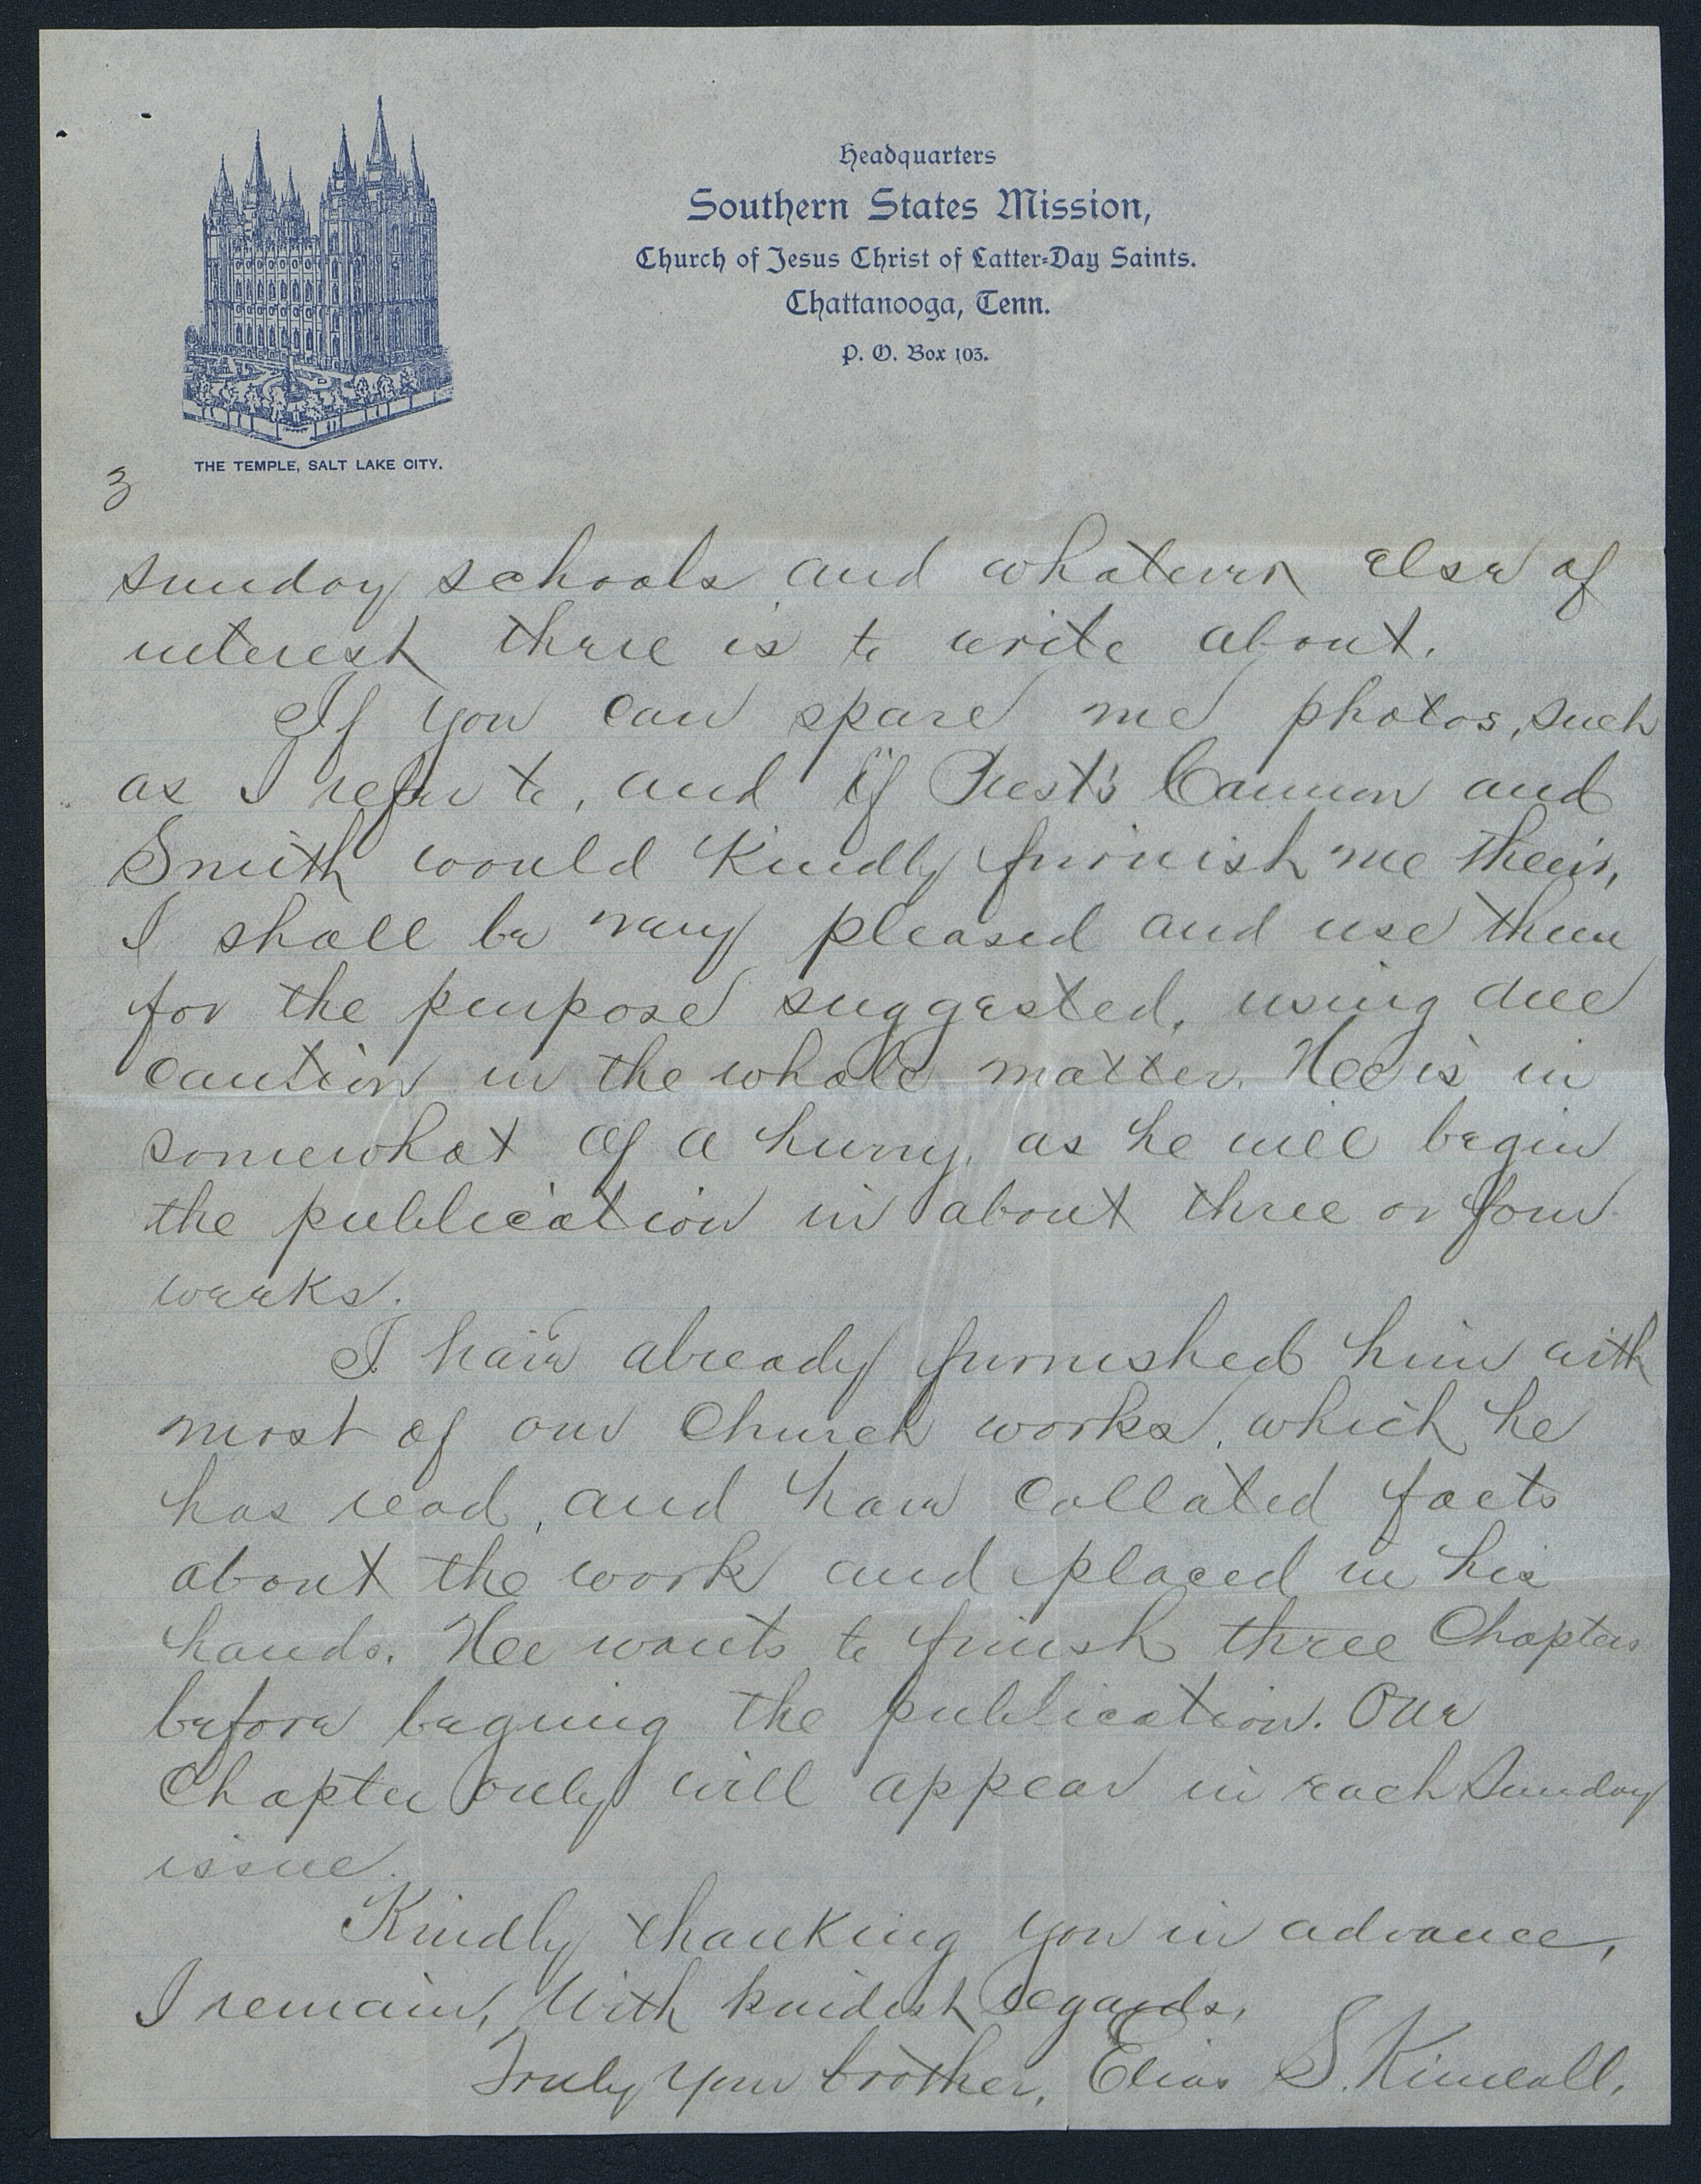 Headquarters
Southern States Mission,
Church of Jesus Christ of Latter-Day Saints.
Chattanooga, Tenn.
P. O. Box 103.
THE TEMPLE, SALT LAKE CITY.
3
sunday schools and whatever else of
interest there is to write about.
If you can spare me photos, such
as I refer to, and if Prest's Cannon and
Smith would kindly furnish me their,
I shall be very pleased and use them
for the purpose suggested, using due
caution in the whole matter. He is in
somewhat of a hurry, as he will begin
the publication in about three or four
weeks.
I have already furnished him with
most of our Church works, which he
has read, and have collated facts
about the work and placed in his
hands. He wants to finish three Chapters
before begning the publication. One
Chapter only will appear in each Sunday
issue.
Kindly thanking you in advance,
I remain, With kindest regards,
Truly your brother, Elias S. Kimball.